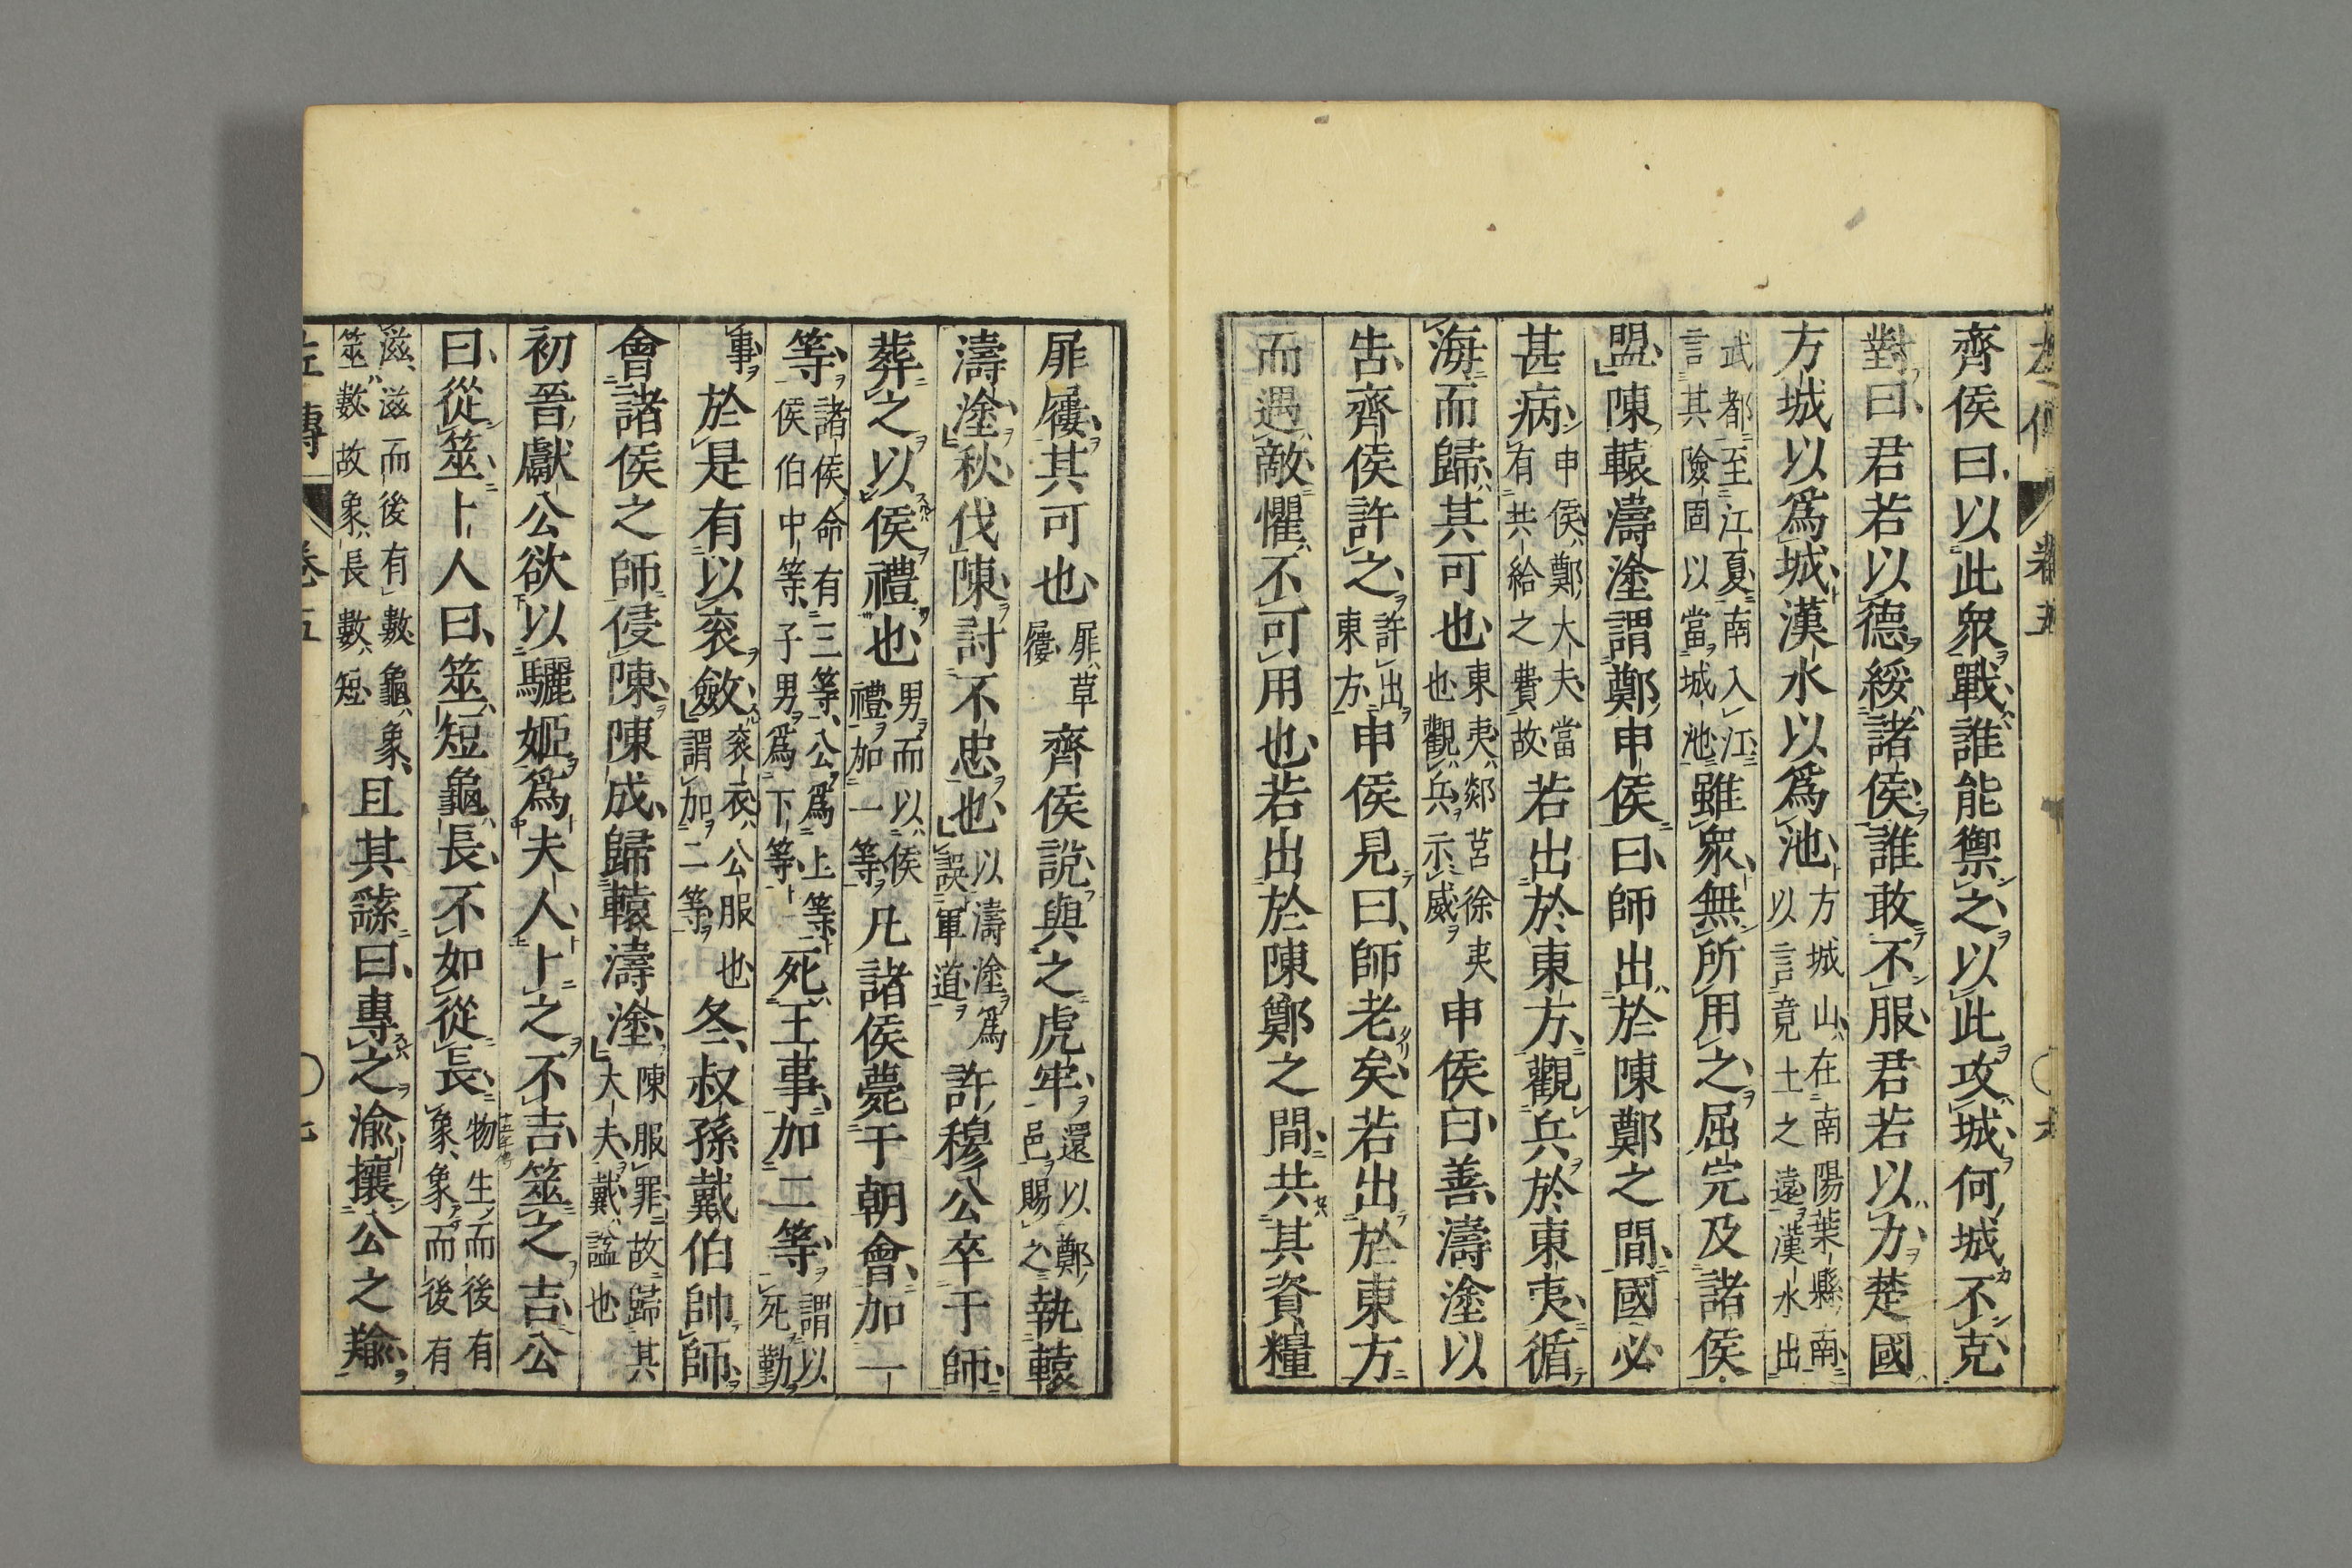 齊侯曰以此衆戰誰能禦之以此攻城何城不克
對曰君若以德綏諸侯誰敢不服君若以力楚國
方城以爲城漢水以爲池方城山在南陽葉縣南以言竟土之遠漢水出
武都至江夏南入江言其險固以當城池雖衆無所用之屈完及諸侯
盟陳轅濤塗謂鄭申侯曰師出於陳鄭之間國必
甚病申侯鄭大夫當有共給之費故若出於東方觀兵於東夷循
海而歸其可也東夷郯莒徐夷也觀兵示威申侯曰善濤塗以
告齊侯許之許出東方申侯見曰師老矣若出於東方
而遇敵懼不可用也若出於陳鄭之間共其資糧
屝屨其可也屝草屨齊侯說與之虎牢還以鄭邑賜之執轅
濤塗秋伐陳討不忠也以濤塗爲誤軍道許穆公卒于師
葬之以侯禮也男而以侯禮加一等凡諸侯薨于朝會加一
等諸侯命有三等公爲上等侯伯中等子男爲下等死王事加二等謂以死勤
事於是有以袞斂袞衣公服也謂加二等冬叔孫戴伯帥師
會諸侯之師侵陳陳成歸轅濤塗陳服罪故歸其大夫戴謚也
初晉獻公欲以驪姬爲夫人卜之不吉筮之吉公
曰從筮卜人曰筮短龜長不如從長物生而後有象象而後有
滋滋而後有數龜象筮數故象長數短且其繇曰專之渝攘公之羭